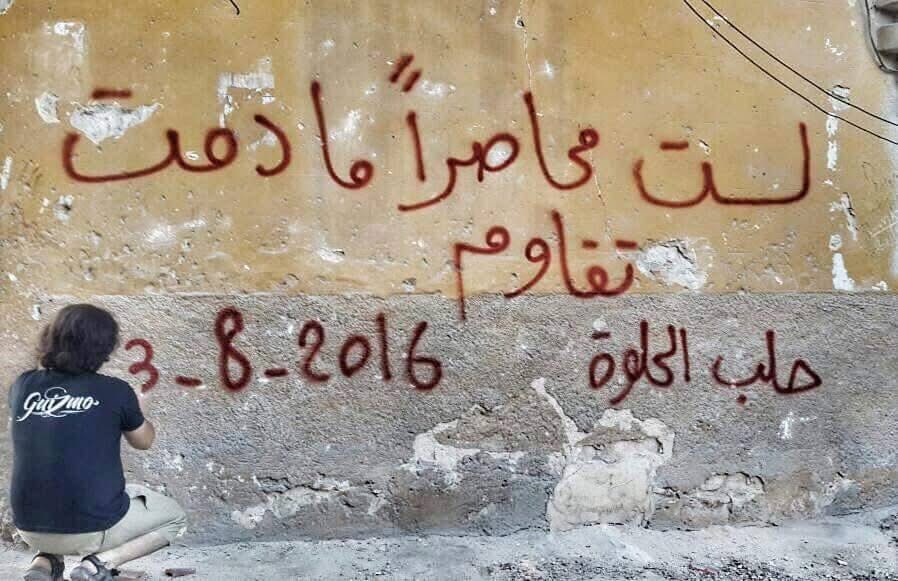 لست محاصراً ما دمت
تقاوم
حلب الحلوة
3-8-2016
Guizmo